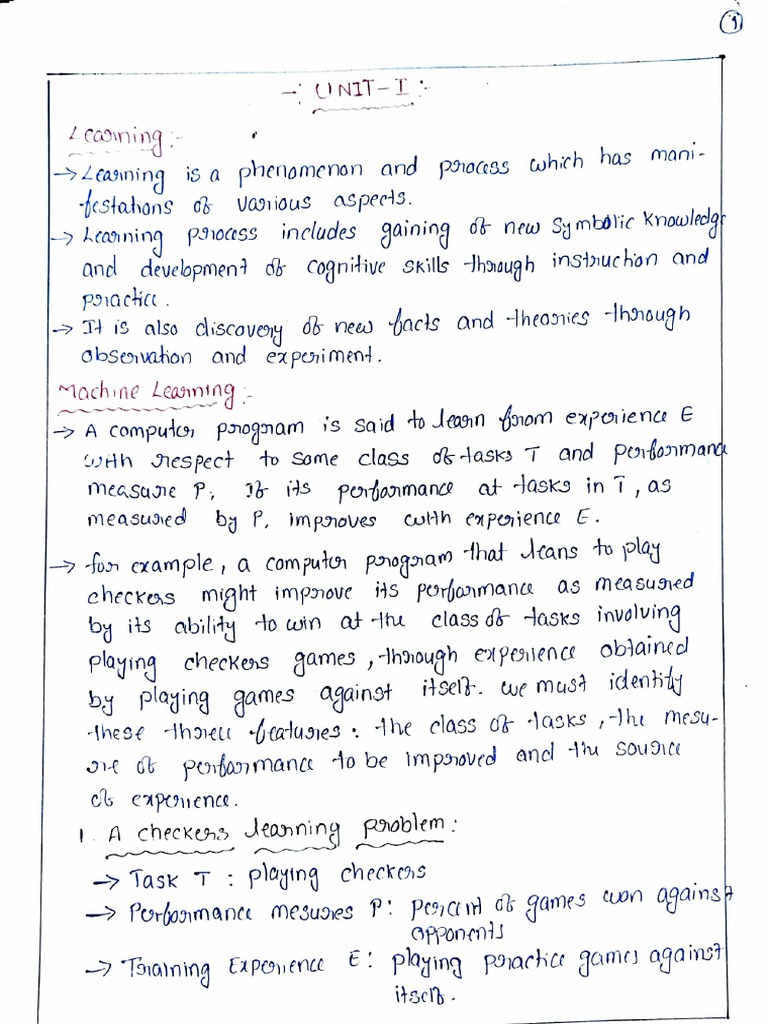 1
-: UNIT-I :-
Learning :-
→ Learning is a phenomenon and process which has mani-
festations of various aspects.
→ Learning process includes gaining of new symbolic knowledge
and development of cognitive skills through instruction and
practice.
→ It is also discovery of new facts and theories through
observation and experiment.
Machine Learning :-
→ A computer program is said to learn from experience E
with respect to some class of tasks T and performance
measure P, If its performance at tasks in T, as
measured by P, improves with experience E.
→ for example, a computer program that leans to play
checkers might improve its performance as measured
by its ability to win at the class of tasks involving
playing checkers games, through experience obtained
by playing games against itself. we must identify
these three features : the class of tasks, the mesu-
re of performance to be improved and the source
of experience.
1. A checkers learning problem :
→ Task T : playing checkers
→ Performance mesures P : percent of games won against
opponents
→ Training Experience E : playing practice games against
itself.